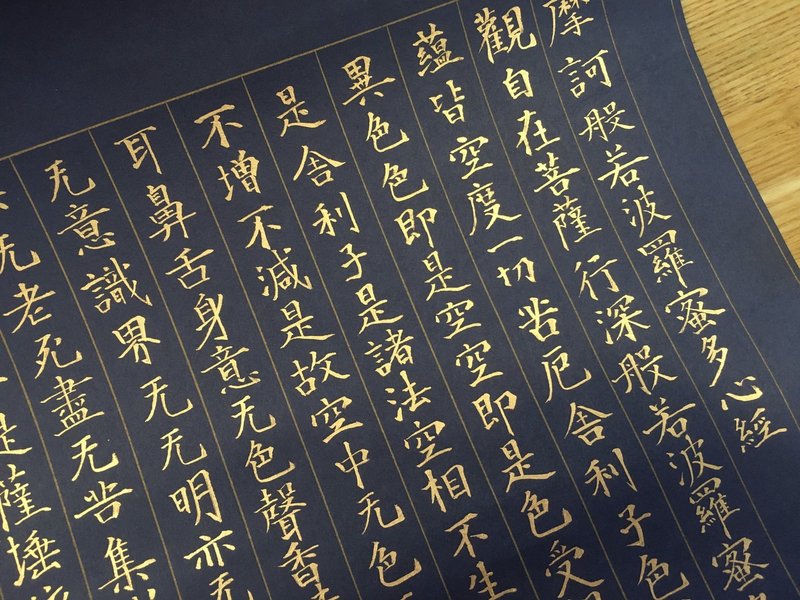 摩訶般若波羅蜜多心經
觀自在菩薩行深般若波羅蜜
蘊皆空度一切苦厄舍利子色
異色色即是空空即是色受
是舍利子是諸法空相不生
不增不減是故空中无色
耳鼻舌身意无色聲香
无意識界无无明亦无
无老死盡无苦集
是薩埵